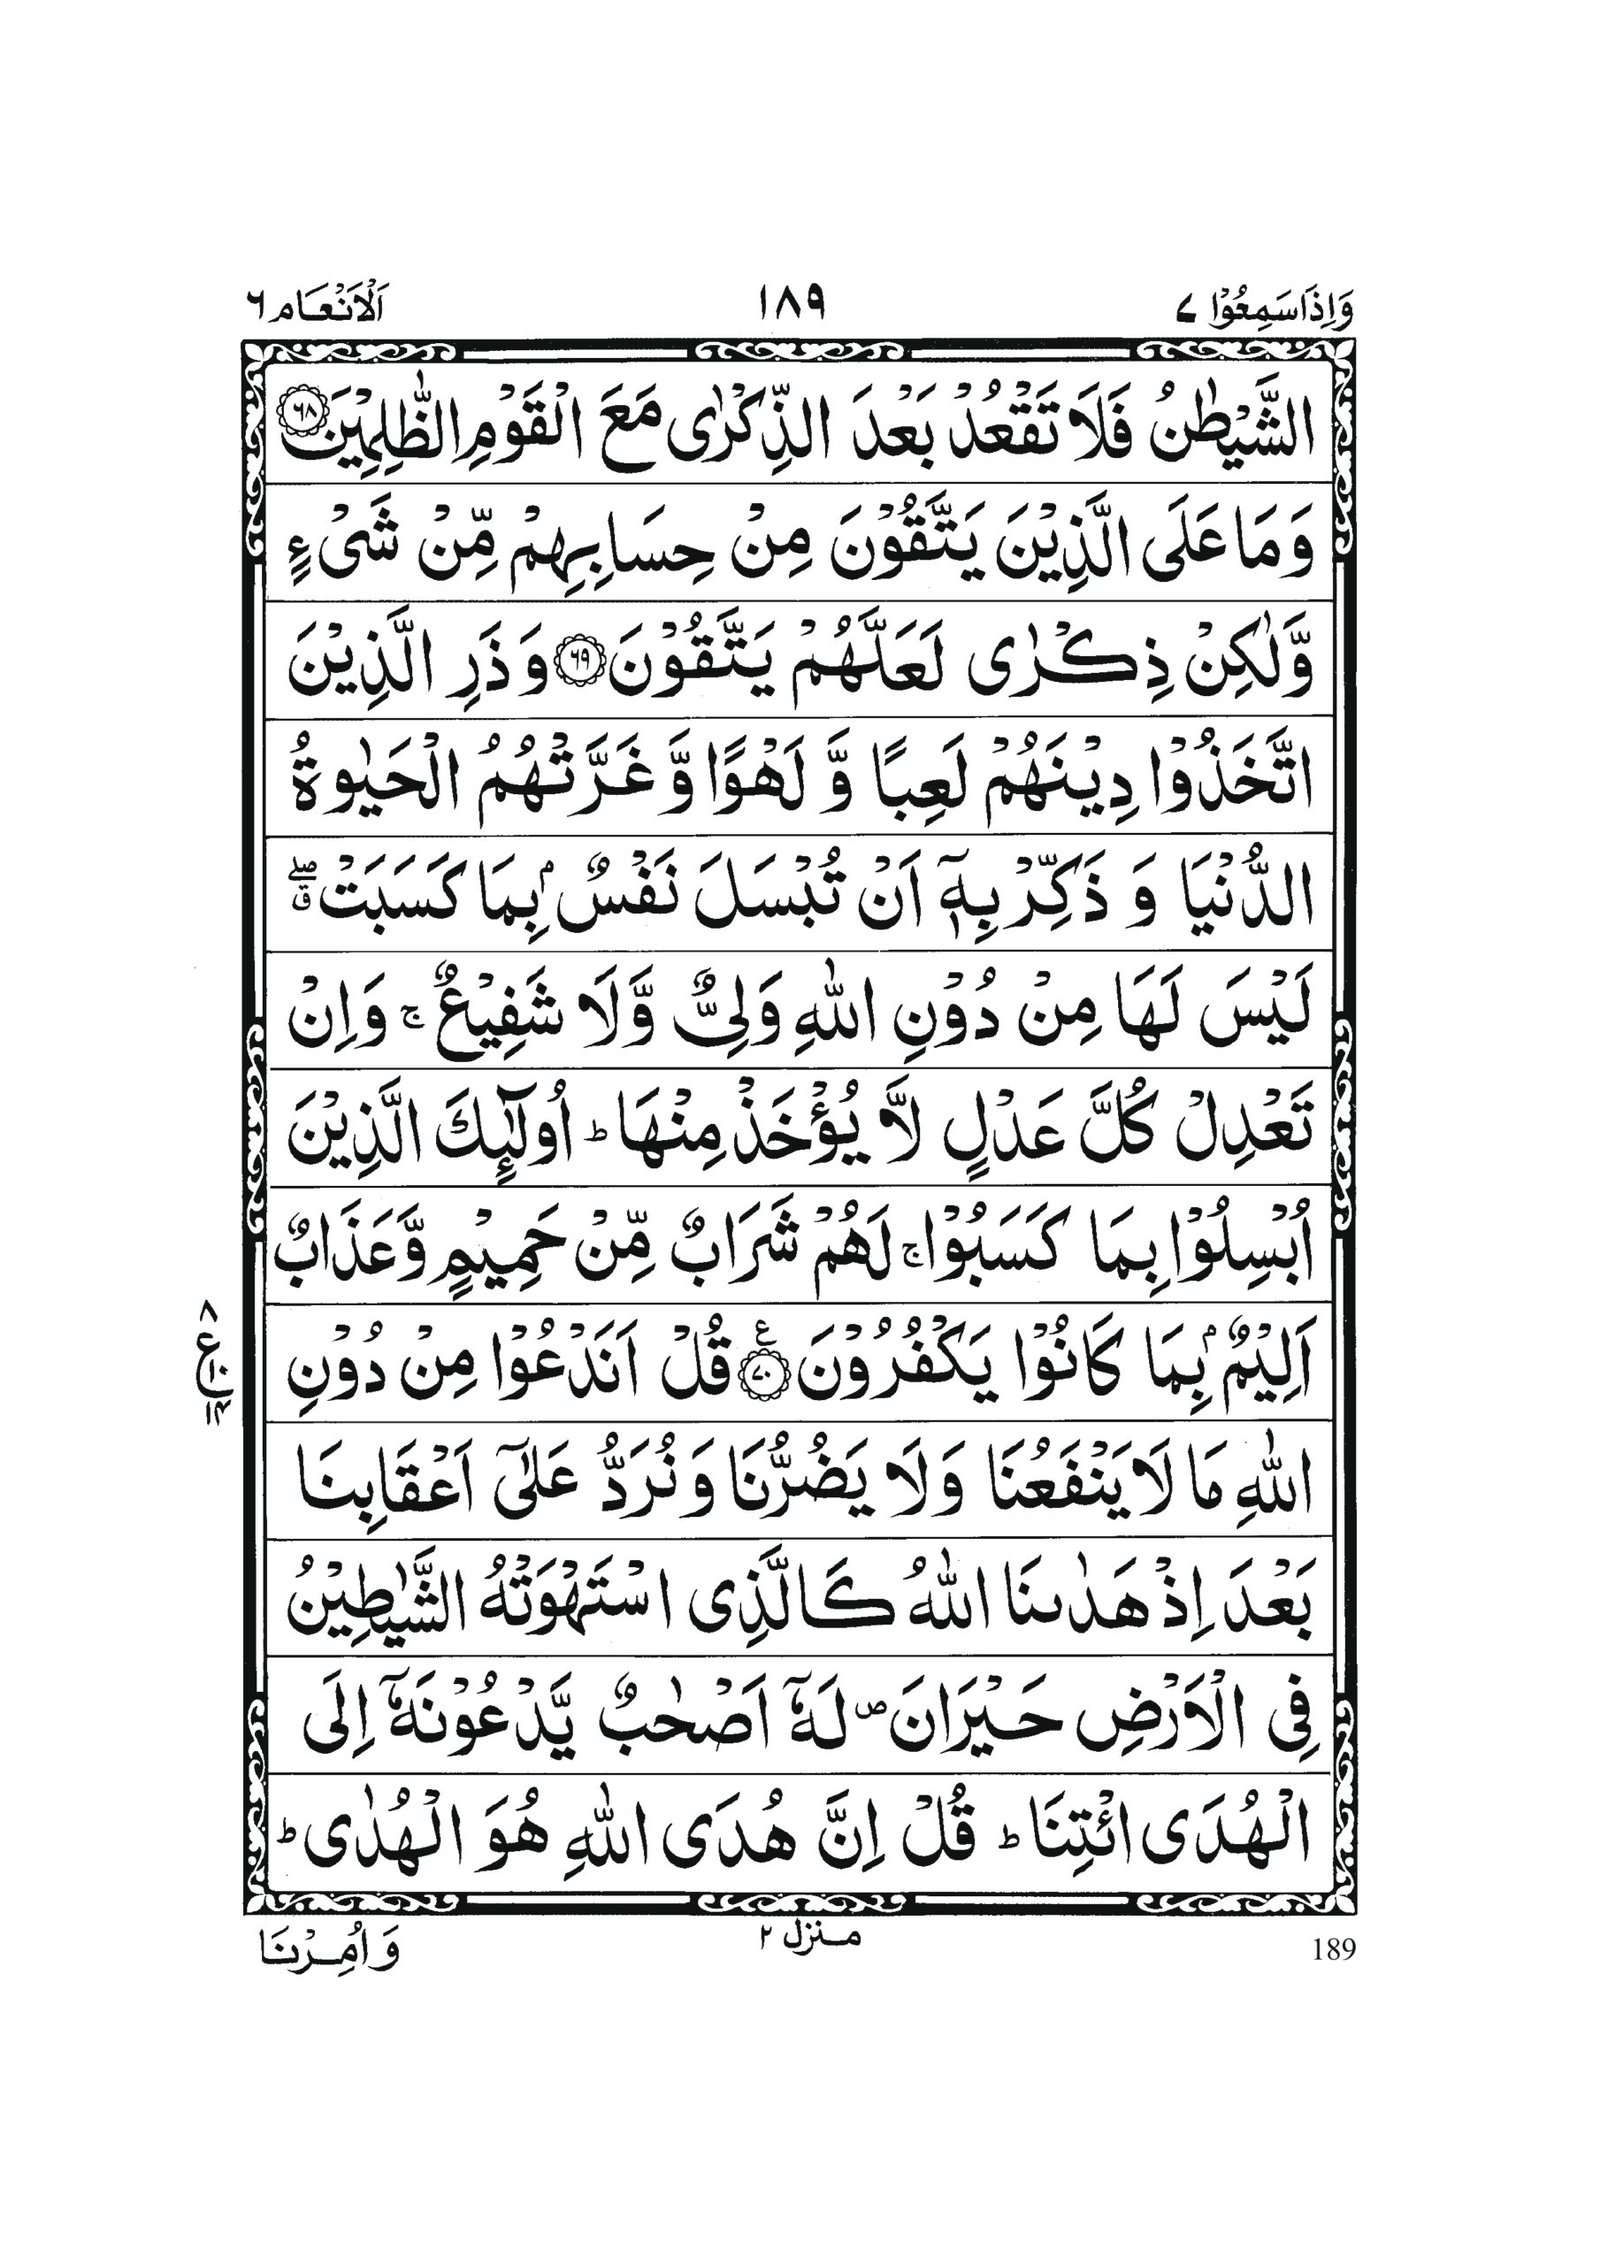 وَاِذَاسَمِعُوْا ٧ ١٨٩ اَلْاَنْعَام ٦
الشَّيْطٰنُ فَلَا تَقْعُدْ بَعْدَ الذِّكْرٰى مَعَ الْقَوْمِ الظّٰلِمِيْنَ ﴿٦٨﴾
وَمَا عَلَى الَّذِيْنَ يَتَّقُوْنَ مِنْ حِسَابِهِمْ مِّنْ شَىْءٍ
وَّلٰكِنْ ذِكْرٰى لَعَلَّهُمْ يَتَّقُوْنَ ﴿٦٩﴾ وَذَرِ الَّذِيْنَ
اتَّخَذُوْا دِيْنَهُمْ لَعِبًا وَّ لَهْوًا وَّ غَرَّتْهُمُ الْحَيٰوةُ
الدُّنْيَا وَ ذَكِّرْ بِهٖٓ اَنْ تُبْسَلَ نَفْسٌۢ بِمَا كَسَبَتْ ۖق
لَيْسَ لَهَا مِنْ دُوْنِ اللّٰهِ وَلِىٌّ وَّلَا شَفِيْعٌ ۚ وَاِنْ
تَعْدِلْ كُلَّ عَدْلٍ لَّا يُؤْخَذْ مِنْهَا ؕ اُولٰٓئِكَ الَّذِيْنَ
اُبْسِلُوْا بِمَا كَسَبُوْا ۚ لَهُمْ شَرَابٌ مِّنْ حَمِيْمٍ وَّعَذَابٌ
اَلِيْمٌۢ بِمَا كَانُوْا يَكْفُرُوْنَ ﴿٧٠﴾ ع قُلْ اَنَدْعُوْا مِنْ دُوْنِ
اللّٰهِ مَا لَا يَنْفَعُنَا وَلَا يَضُرُّنَا وَ نُرَدُّ عَلٰٓى اَعْقَابِنَا
بَعْدَ اِذْ هَدٰىنَا اللّٰهُ كَالَّذِى اسْتَهْوَتْهُ الشَّيٰطِيْنُ
فِى الْاَرْضِ حَيْرَانَ ص لَهٗٓ اَصْحٰبٌ يَّدْعُوْنَهٗٓ اِلَى
الْهُدَى ائْتِنَا ؕ قُلْ اِنَّ هُدَى اللّٰهِ هُوَ الْهُدٰى ؕ
189 منزل ٢ وَ اُمِرْنَا